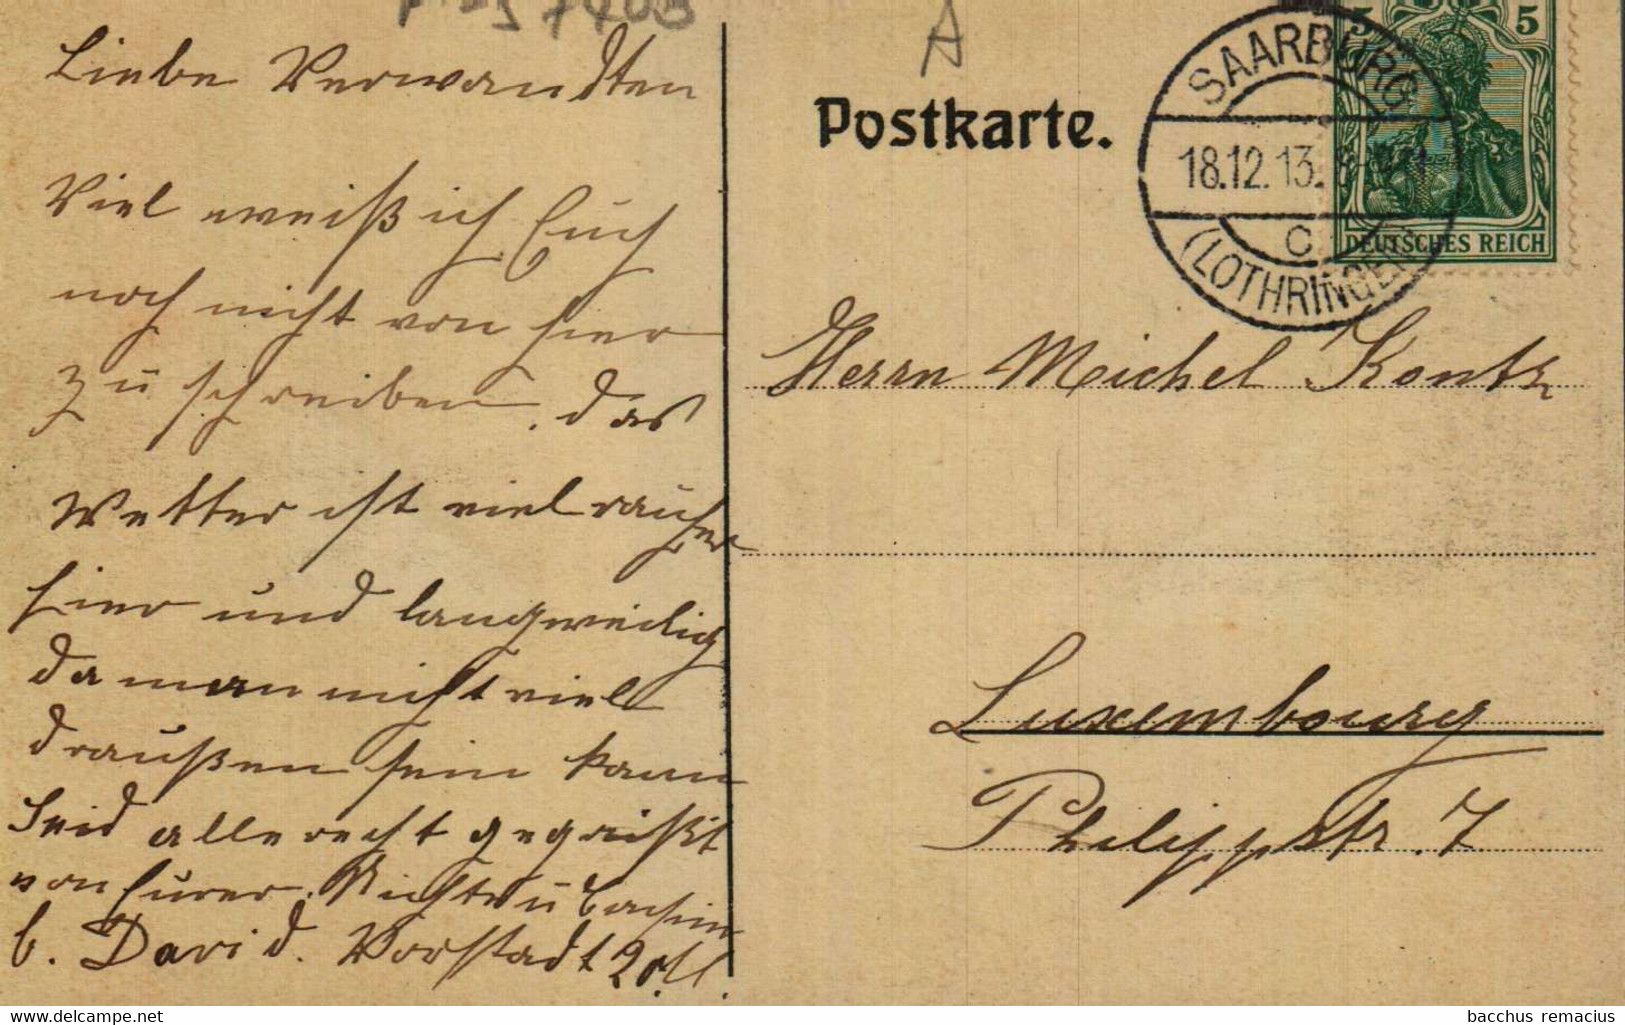 Liebe Verwandten
Viel weiß ich Euch
noch nicht von hier
zu schreiben, das
Wetter ist viel rauher
hier und langweilig
da man nicht viel
draußen sein kann
Seid alle recht gegrüßt
von Eurer
b. David. Vorstadt 20
A
Postkarte.
SAARBURG
18.12.13.
C
(LOTHRINGEN)
5 5
DEUTSCHES REICH
Herrn Michel Kontz
Luxembourg
Philippstr. 7
delcampe.net
bacchus remacius